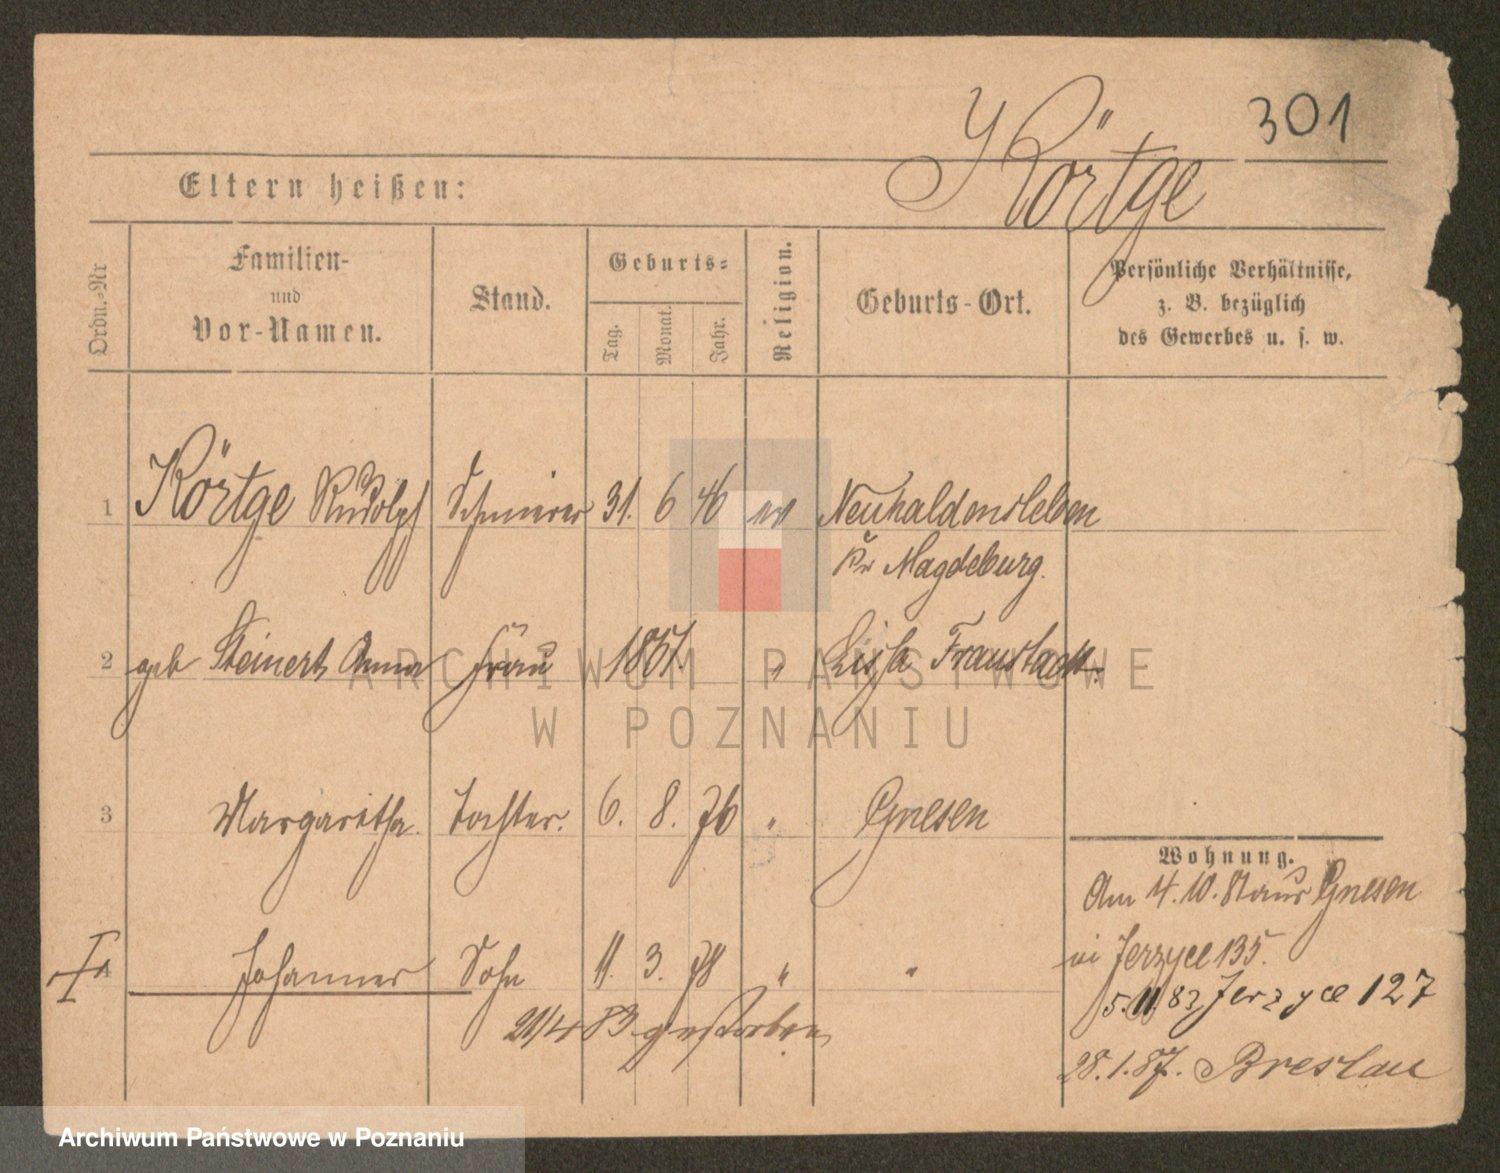 301
Körtge
Eltern heißen:
Ordn.-Nr
Familien-
und
Vor-Namen.
Stand.
Geburts-
Tag.
Monat.
Jahr.
Religion.
Geburts-Ort.
Persönliche Verhältnisse,
z. B. bezüglich
des Gewerbes u. s. w.
1 Körtge Rudolph Schmierer 31. 6 46 ev Neuhaldensleben
Kr Magdeburg.
2 geb Steinert Anna Frau 1851. " Lissa Fraustadt.
3 Margaritha. Tochter. 6. 8. 76 " Gnesen
4 Johannes Sohn 11. 3. 78 " "
21/4 83 gestorben
Wohnung.
Am 4. 10. 81 aus Gnesen
Jerzyce 135.
5. 11. 83 Jerzyce 127
28. 1. 87. Breslau
ARCHIWUM PAŃSTWOWE
W POZNANIU
Archiwum Państwowe w Poznaniu